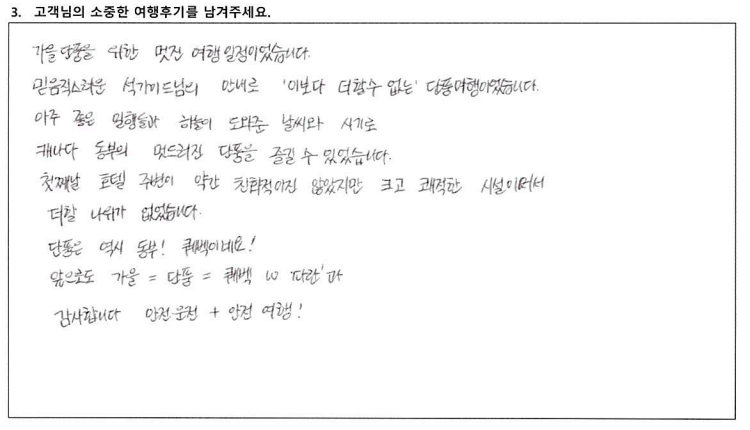 3. 고객님의 소중한 여행후기를 남겨주세요.
가을 단풍을 위한 멋진 여행 일정이었습니다.
믿음직스러운 석가이드님의 안내로 '이보다 더할수 없는' 단풍여행이었습니다.
아주 좋은 일행들과 하늘이 도와준 날씨와 시기로
캐나다 동부의 멋드러진 단풍을 즐길 수 있었습니다.
첫째날 호텔 주변이 약간 친화적이진 않았지만 크고 쾌적한 시설이어서
더할 나위가 없었습니다.
단풍은 역시 동부! 퀘벡이네요!
앞으로도 가을 = 단풍 = 퀘벡 w '파란'과
감사합니다 안전운전 + 안전 여행!